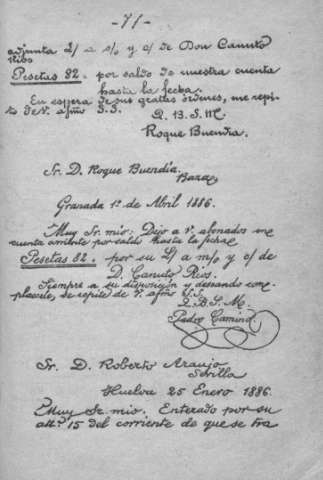 - 71 -
adjunta L/ a s/o y c/ de Don Canuto
Rios
Pesetas 82. por saldo de nuestra cuenta
hasta la fecha.
En espera de sus gratas órdenes, me repi-
to de V. afmo S.S.
Q. B. S. M.
Roque Buendia.
Sr. D. Roque Buendía.
Baza
Granada 1º de Abril 1886.
Muy Sr. mio: Dejo a V. abonados en
cuenta por saldo hasta la fecha
Pesetas 82. por su L/ a m/o y c/ de
D. Canuto Rios.
Siempre a su disposición y deseando com-
placerle, se repite de V. afmo S.S.
Q. B. S. M.
Pedro Camino
Sr. D. Roberto Araujo
Sevilla
Huelva 25 Enero 1886.
Muy Sr. mio. Enterado por su
att.ª 15 del corriente de que se tra